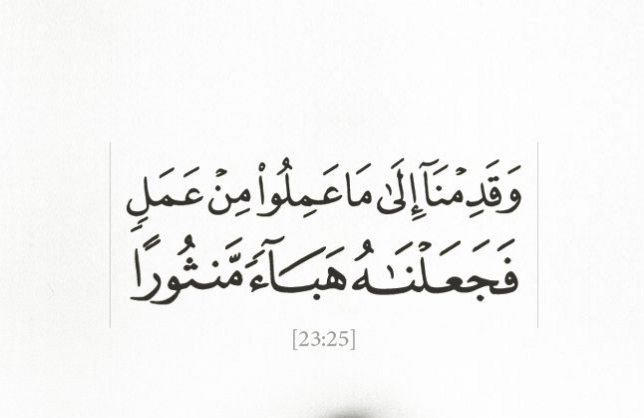 وَقَدِمْنَآ إِلَىٰ مَا عَمِلُوا۟ مِنْ عَمَلٍ
فَجَعَلْنَـٰهُ هَبَآءً مَّنثُورًا
[23:25]